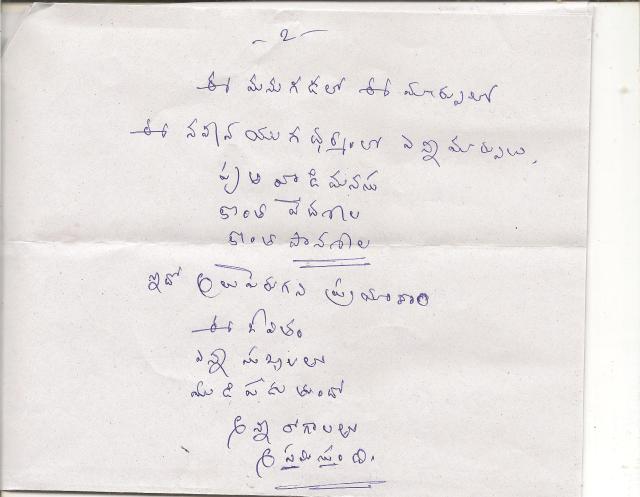 - 2 -
ఈ మనుగడలో ఈ మార్పులో
ఈ నవీన యుగ ధర్మంలో ఎన్నో మార్పులు,
ప్రతి వాడి మనసు
కొంత వేదశాల
కొంత పానశాల
ఇదో అలుపెరుగని ప్రయాణం
ఈ జీవితం
ఎన్నో సుఖాలలో
ముడిపడుతుందో
అన్ని రాగాలలో